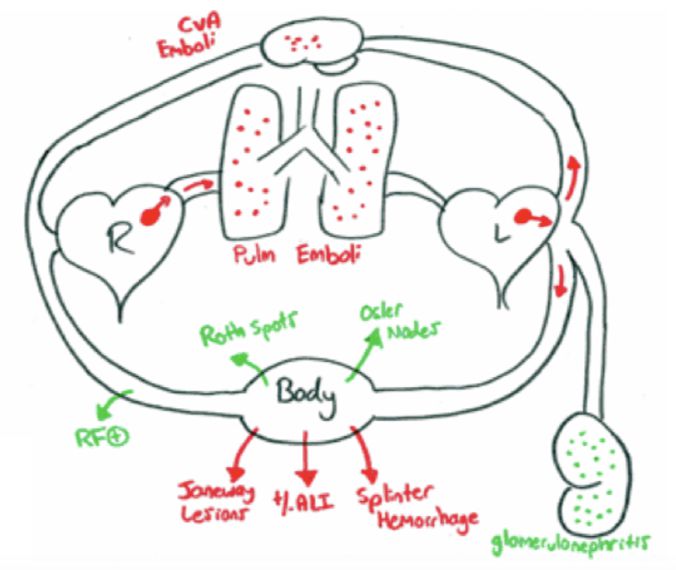 CVA
Emboli
R
L
Pulm Emboli
Roth Spots
Osler
Nodes
Body
RF⊕
Janeway
Lesions
+/. ALI
Splinter
Hemorrhage
glomerulonephritis